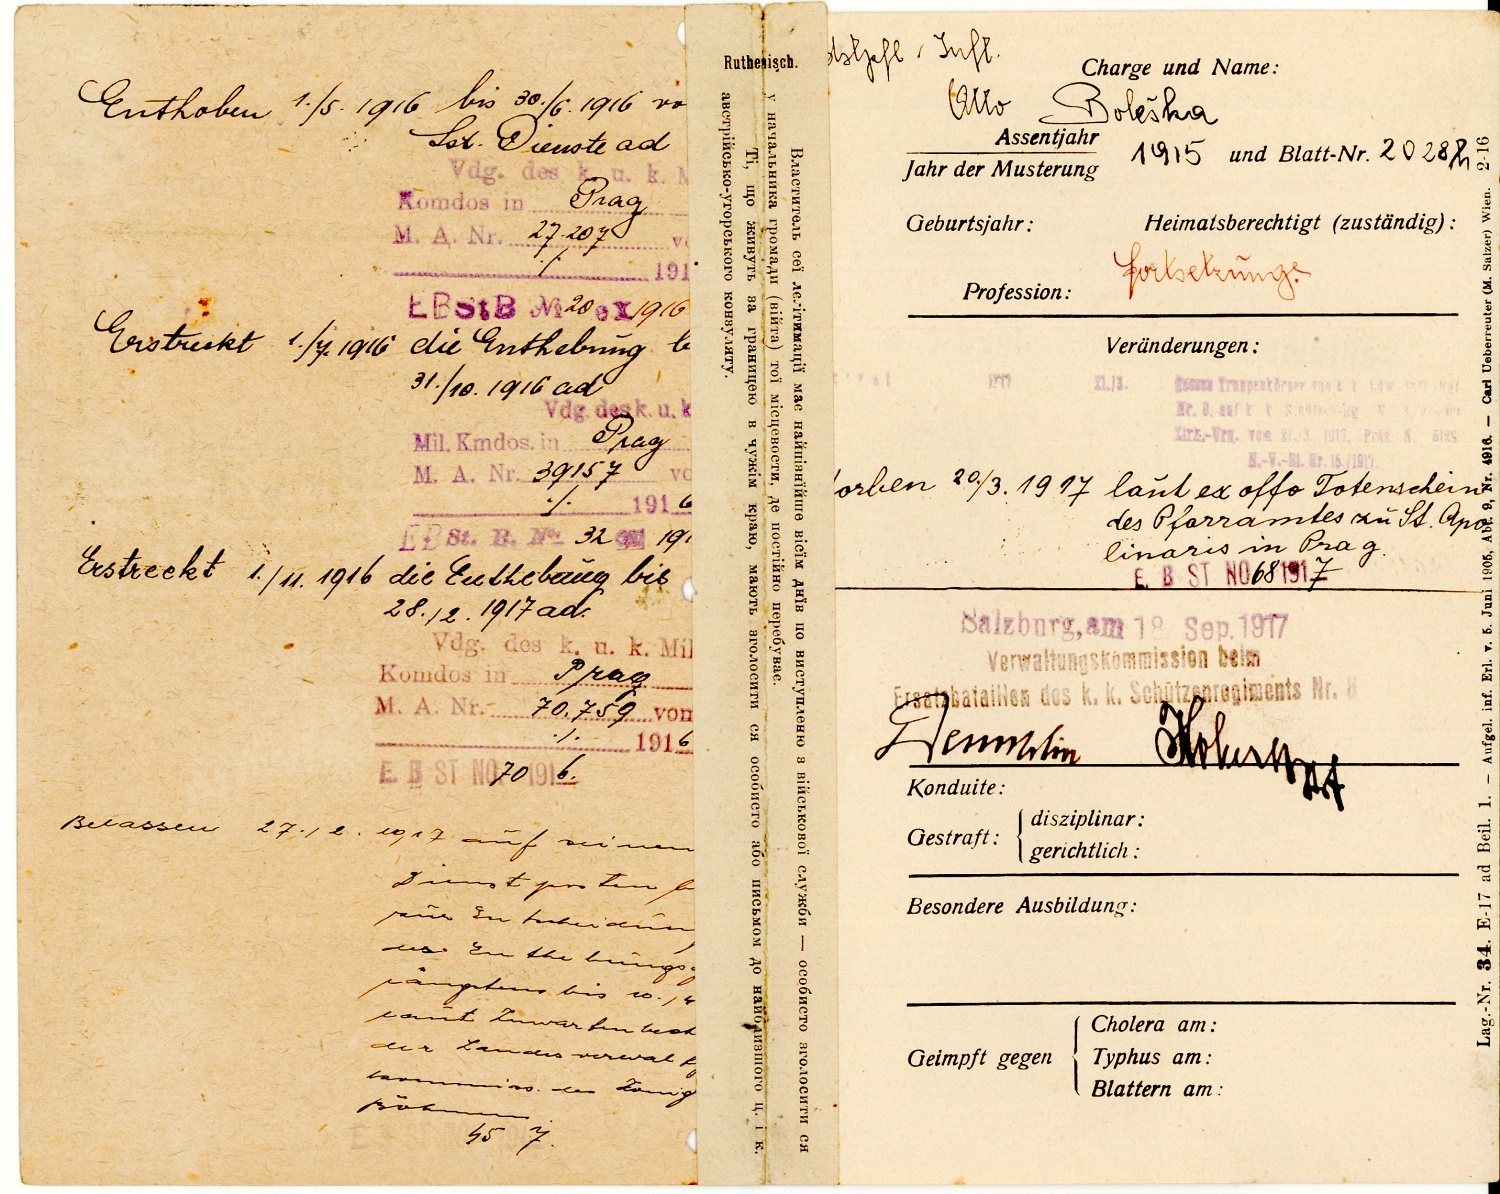 Enthoben 1./5. 1916 bis 30./6. 1916 vo
Lst. Dienste ad
Vdg. des k. u. k. M
Komdos in Prag
M. A. Nr. 27.207 v
./. 191
EBStB № 20 ex 1916
Erstreckt 1./7. 1916 die Enthebung b
31./10. 1916 ad
Vdg. des k. u. k
Mil. Kmdos. in Prag
M. A. Nr. 39157 vo
./. 1916
EB St. B. No. 32 191
Erstreckt 1./11. 1916 die Enthebung bis
28./2. 1917 ad.
Vdg. des k. u. k. Mil
Komdos in Prag
M. A. Nr. 70.759 vom
./. 1916
E B ST NO 70 1916.
Belassen 27./2. 1917 auf seinem
Dienstposten b
zur Entscheidun
des Enthebungs
längstens bis 10./4
laut Zuwarten
der Landesverwalt
des König
Böhmen.
45 7.
Ruthenisch.
Властитель сеї лєґітимації має найпізнїйше вісїм днїв по виступленю з військової служби — особисто зголосити ся
у начальника громади (війта) тої місцевости, де постійно перебуває.
Ті, що живуть за границею в чужім краю, мають зголосити ся особисто або письмом до найблизшого ц. і к.
австрійсько-угорського конзуляту.
Inft.
Charge und Name:
Otto Boleška
Assentjahr
Jahr der Musterung 1915 und Blatt-Nr. 2028
Geburtsjahr: Heimatsberechtigt (zuständig):
Fortsetzung.
Profession:
Veränderungen:
1917 21./3.
Nr. 8, auf k. k. Schützen-Rg.
Zirk.-Vrg. vom 21./3. 1917, Präs. N. 6189
N.-V.-Bl. Nr. 15/1917.
torben 20./3. 1917 laut ex offo Totenschein
des Pfarramtes zu St. Apo
linaris in Prag.
E B ST NO 68 1917
Salzburg, am 18 Sep. 1917
Verwaltungskommission beim
Ersatzbataillon des k. k. Schützenregiments Nr. 8
Konduite:
Gestraft: disziplinar:
gerichtlich:
Besondere Ausbildung:
Geimpft gegen Cholera am:
Typhus am:
Blattern am:
Lag.-Nr. 34. E-17 ad Beil. 1. — Aufgel. inf. Erl. v. 5. Juni 1905, Abt. 9, Nr. 4916. — Carl Ueberreuter (M. Salzer) Wien. 2-16